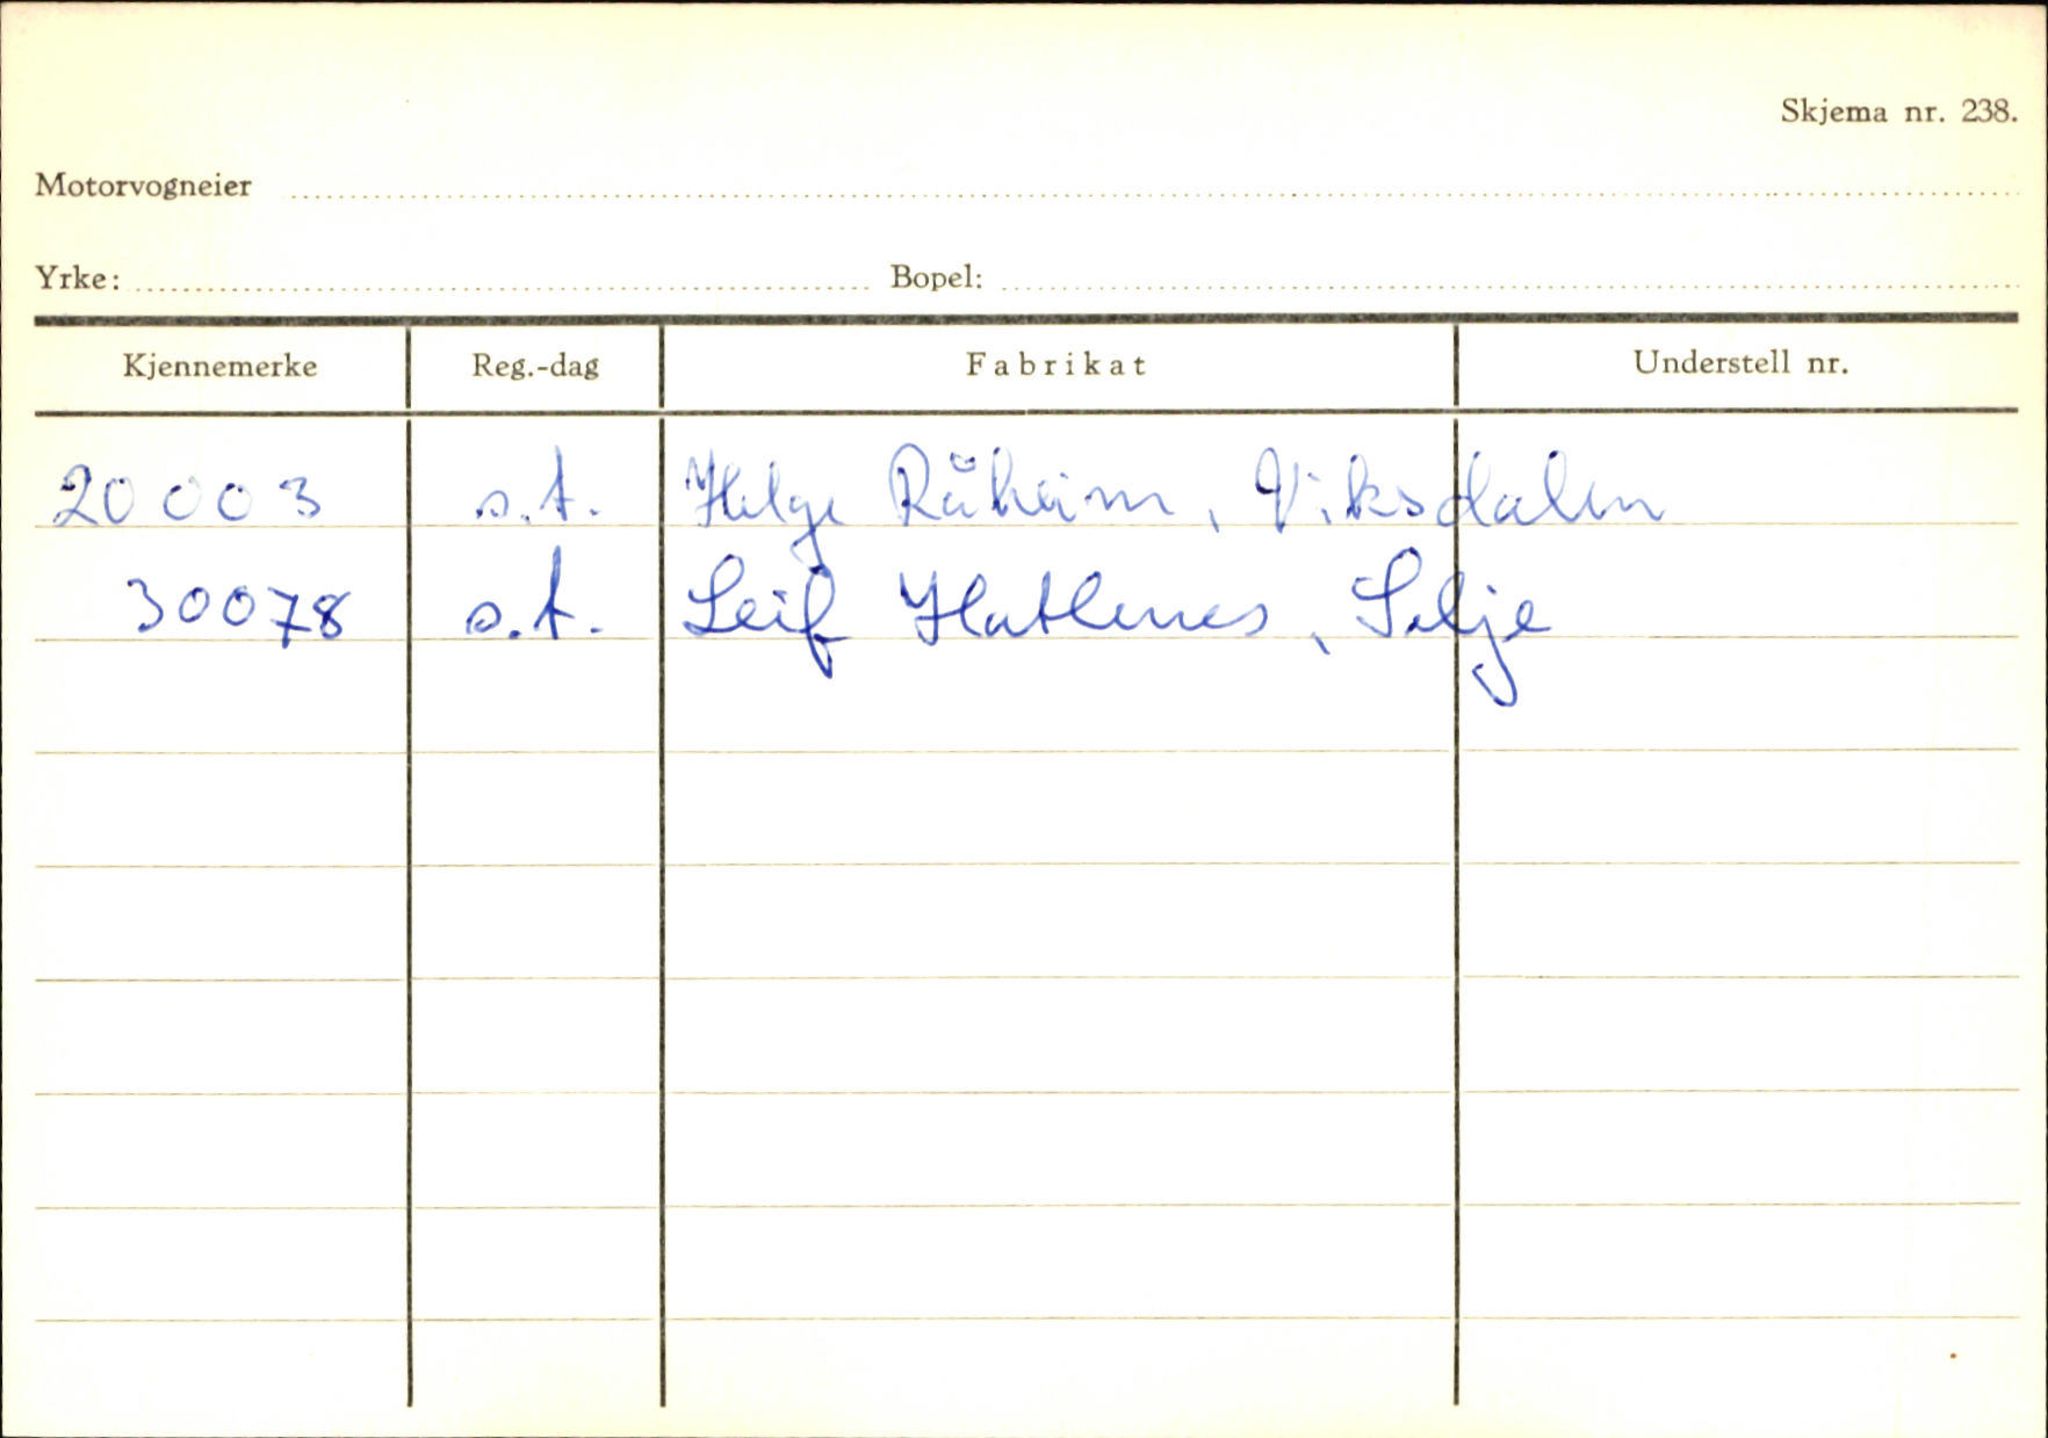 Skjema nr. 238.
Motorvogneier
Yrke: Bopel:
Kjennemerke Reg.-dag Fabrikat Understell nr.
20003 s.t. Helge Råheim, Viksdalen
30078 s.t. Leif Hatlenes, Selje